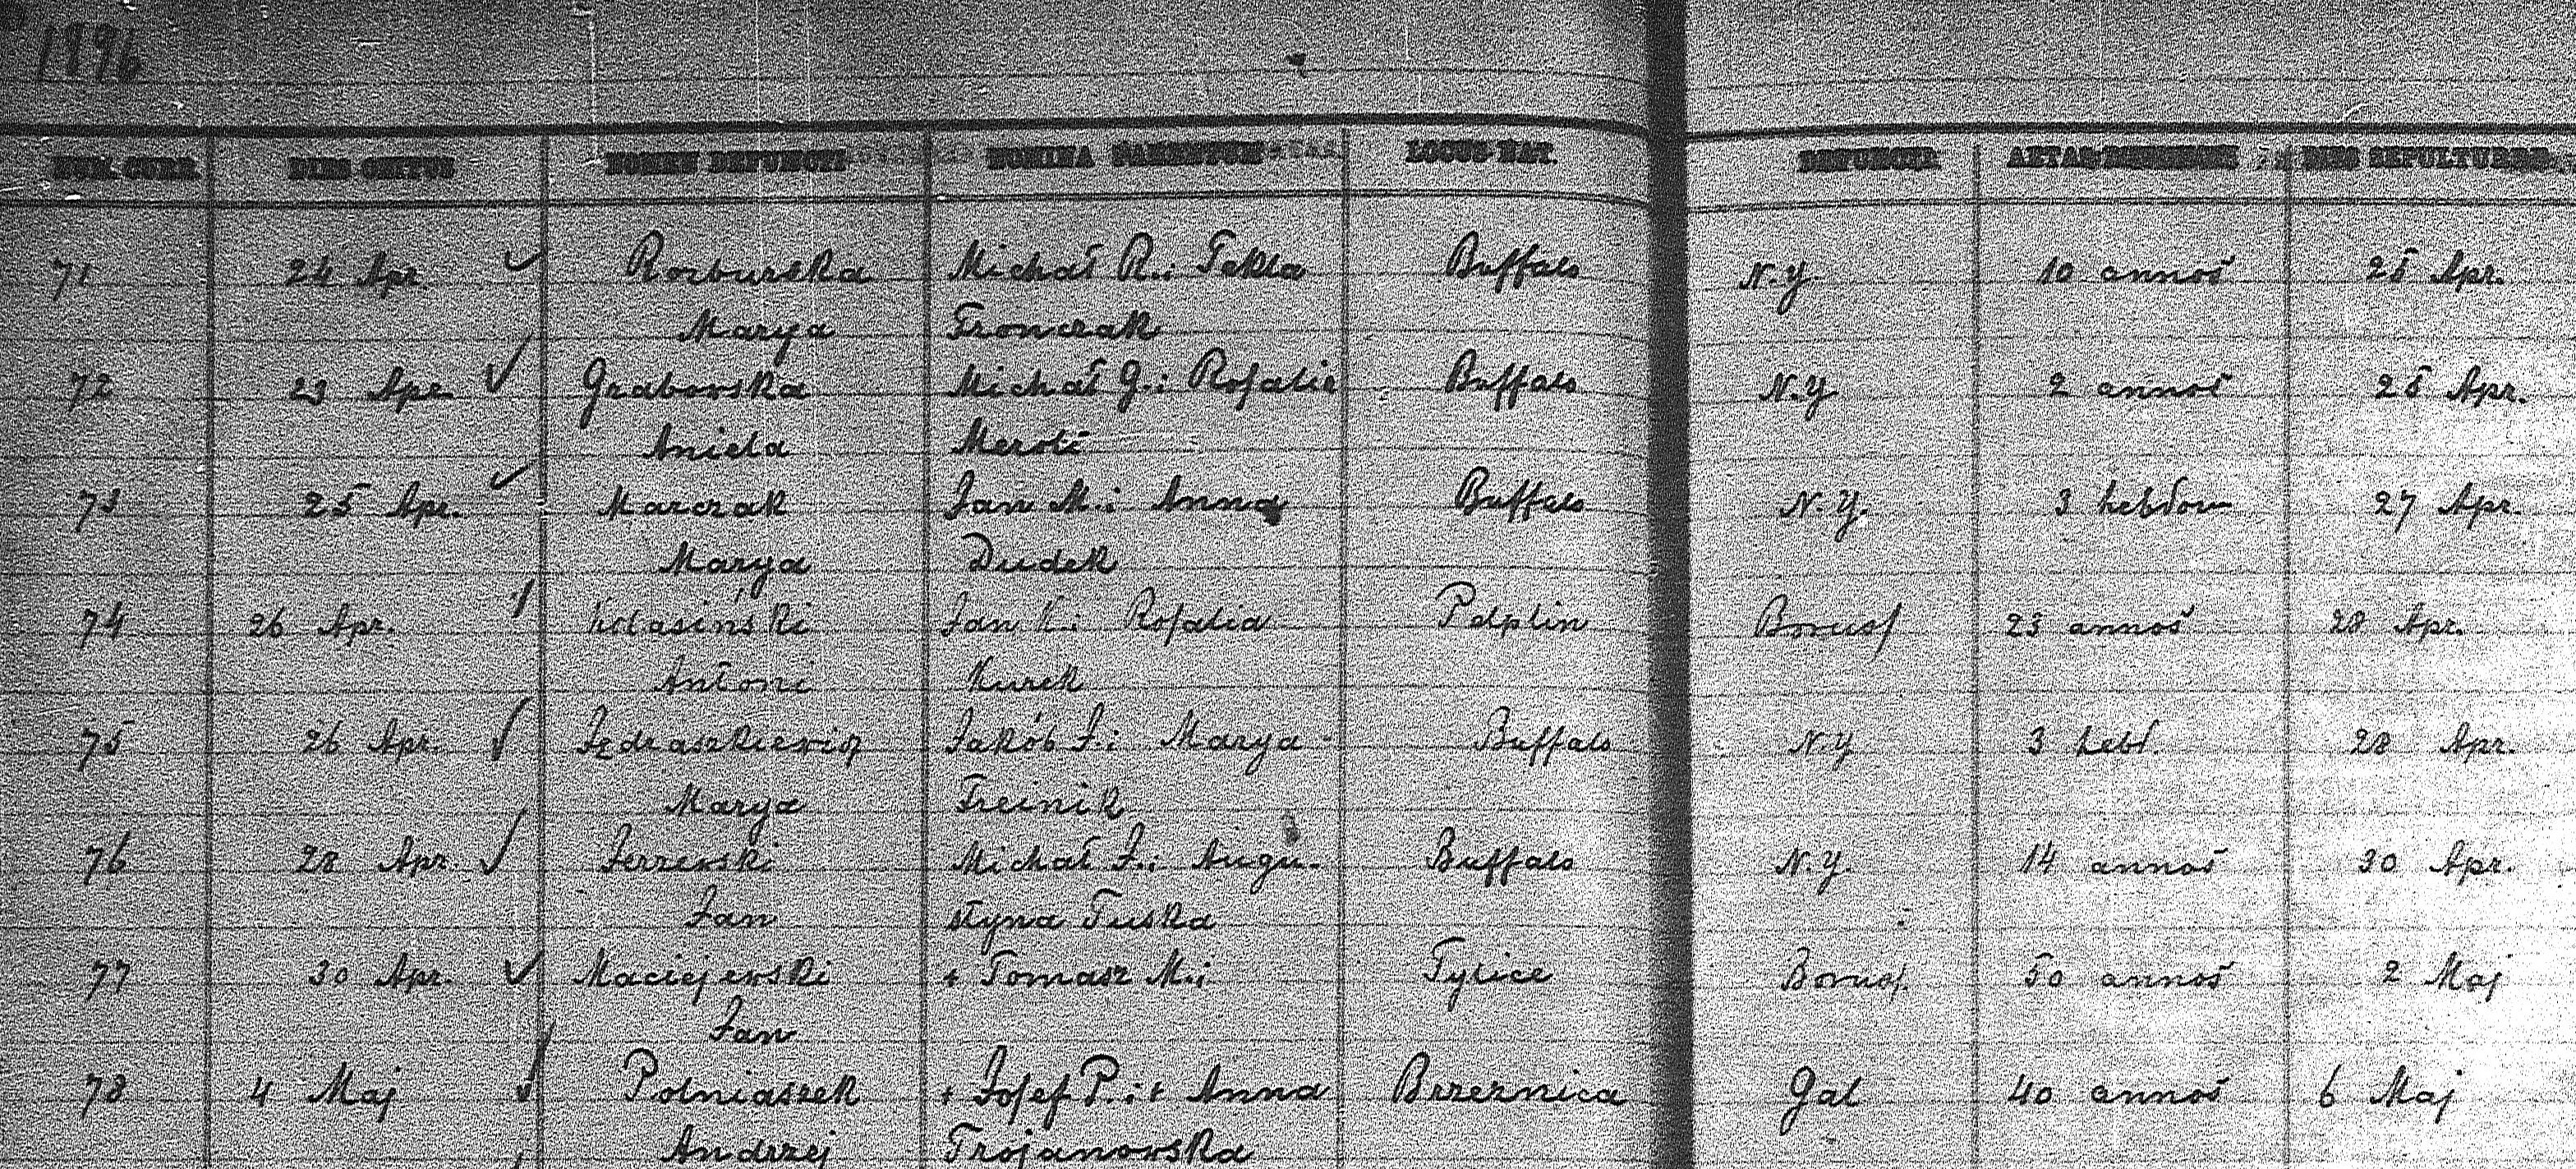 1896
NUM. CURR. DIES OBITUS NOMEN DEFUNCTI NOMINA PARENTUM LOCUS NAT. DEFUNCTI AETAS DIES SEPULTURAE
71 24 Apr. Rozburska Michał R. i Tekla Buffalo N.Y. 10 annos 25 Apr.
Marya Fronczak
72 23 Apr Grabowska Michał G. i Rosalia Buffalo N.Y 2 annos 25 Apr.
Aniela Meroti
73 25 Apr. Marczak Jan M. i Anna Buffalo N.Y. 3 hebdom 27 Apr.
Marya Dudek
74 26 Apr. Kolasiński Jan K. i Rosalia Pelplin Boruss 23 annos 28 Apr.
Antoni Kurek
75 26 Apr. Jędraszkiewicz Jakób J. i Marya Buffalo N.Y 3 hebd. 28 Apr.
Marya Freinik
76 28 Apr. Jerzewski Michał J. i Augu- Buffalo N.Y. 14 annos 30 Apr.
Jan styna Tuska
77 30 Apr. Maciejewski + Tomasz M. i Tylice Boruss. 50 annos 2 Maj
Jan
78 4 Maj Polniaszek + Josef P. i + Anna Brzeznica Gal 40 annos 6 Maj
Andrzej Trojanowska